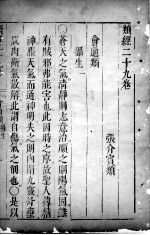 類經二十九卷
張介賓類
會通類
攝生
〇蒼天之氣清靜則志意治順之則陽氣固雖
有賊邪弗能害也此因時之序故聖人傳精
神服天氣而通神明失之則內閉九竅外壅
肌肉衛氣散解此謂自傷氣之削也〇是以